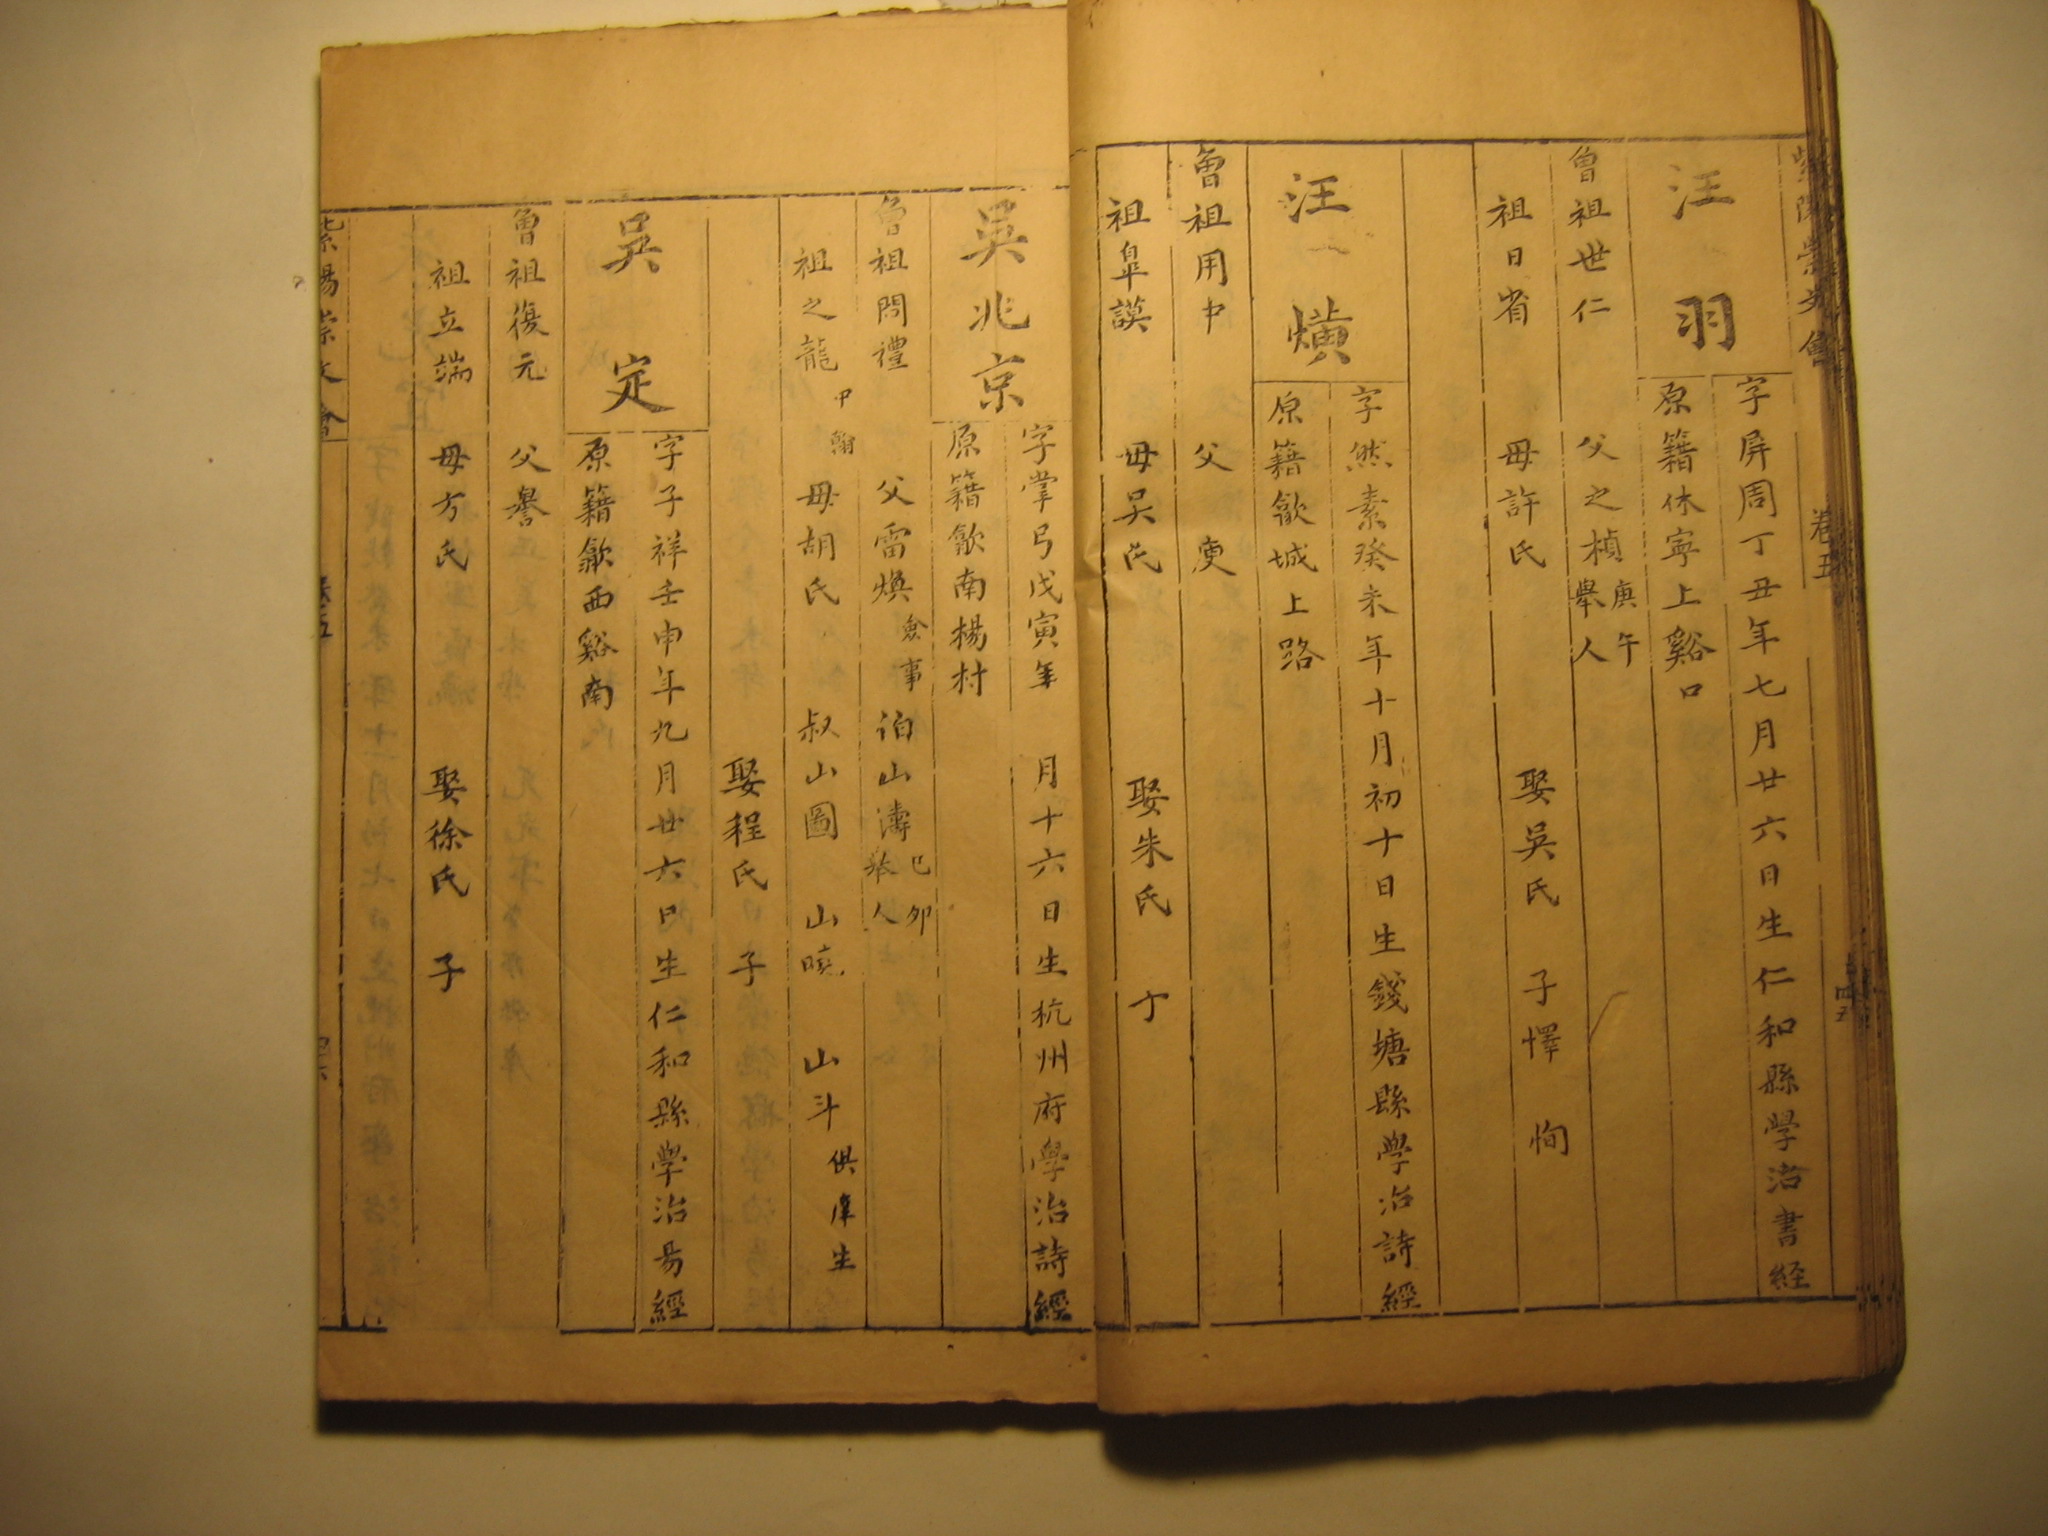 紫陽崇文會 卷五
汪羽
字屏周丁丑年七月廿六日生仁和縣學治書経
原籍休寧上谿口
曾祖世仁 父之楨庚午舉人
祖日省 母許氏 娶吳氏 子懌 恂
汪熿
字然素癸未年十月初十日生錢塘縣學治詩經
原籍歙城上路
曾祖用中 父
祖臯謨 母吴氏 娶朱氏 子
吳兆京
字掌弓戊寅年 月十六日生杭州府學治詩經
原籍歙南楊村
曾祖問禮 父雷煥僉事 伯山濤己夘举人
祖之龍中翰 母胡氏 叔山圖 山曉 山斗俱庠生
娶程氏 子
吳定
字子祥壬申年九月廿六日生仁和縣學治易經
原籍歙西谿南
曾祖復元 父譽
祖立端 母方氏 娶徐氏 子
紫陽崇文會 卷五